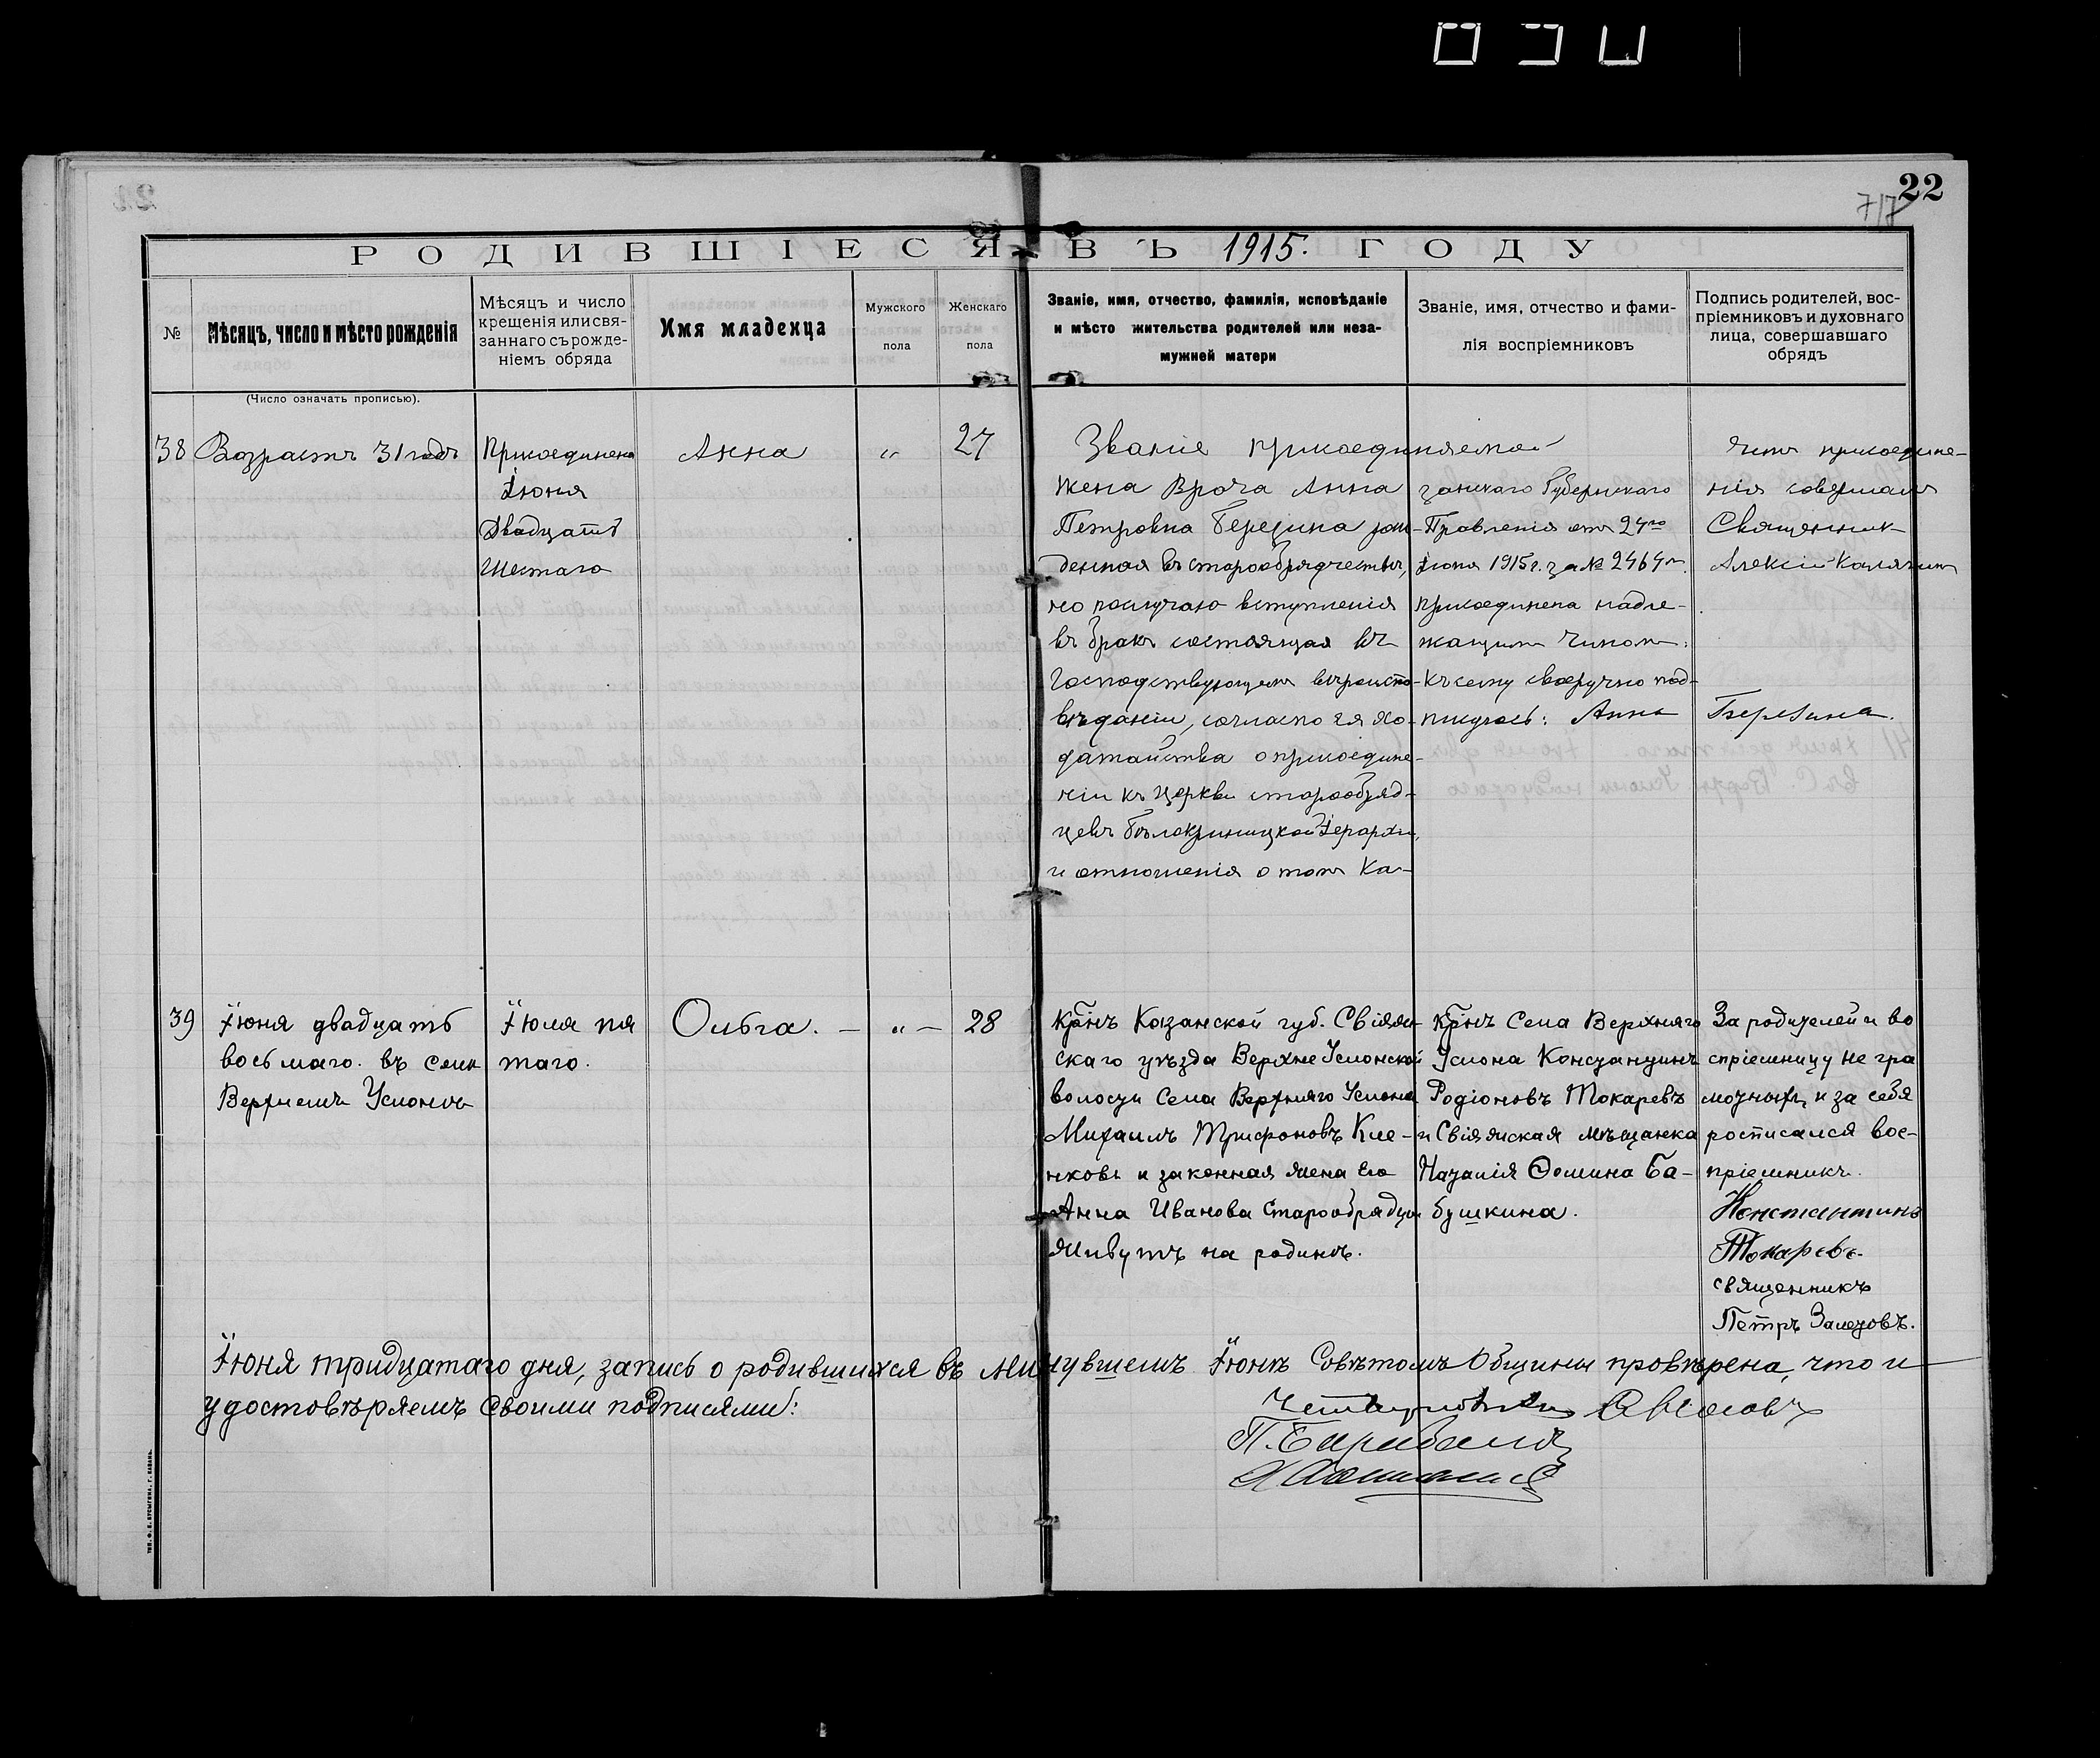 22
7/7
РОДИВШІЕСЯ ВЪ 1915. ГОДУ
№
Мѣсяцъ, число и мѣсто рожденія
Мѣсяцъ и число
крещенія или свя-
заннаго съ рожде-
ніемъ обряда
Имя младенца
Мужского
пола
Женскаго
пола
Званіе, имя, отчество, фамилія, исповѣданіе
и мѣсто жительства родителей или неза-
мужней матери
Званіе, имя, отчество и фами-
лія воспріемниковъ
Подпись родителей, вос-
пріемниковъ и духовнаго
лица, совершавшаго
обрядъ
(Число означать прописью).
38
Возрастъ 31 годъ
Присоединена
Іюня
Двадцать
Шестаго
Анна
"
27
Званіе присоединяемой
жена Врача Анна
Петровна Березина рож-
денная въ старообрядчествѣ,
но по случаю вступленія
въ бракъ состоящая въ
Господствующемъ вѣроиспо-
вѣданіи, согласно ея хо-
датайства о присоедине-
ніи къ Церкви старообряд-
цевъ Бѣлокриницкой Іерархіи,
и отношенія о томъ Ка-
занскаго Губернскаго
Правленія отъ 24го
Іюня 1915 г. за № 2464м.
присоединена надле-
жащимъ Чиномъ.
Къ сему своеручно под-
писуюсь: Анна
Березина.
Чинъ присоедине-
нія совершалъ
Священникъ
Алексій Калягинъ
39
Іюня двадцать
восьмаго. въ селѣ
Верхнемъ Услонѣ
Іюля пя
таго.
Ольга. —
" —
28
Крнъ Казанской губ. Свіяж-
скаго уѣзда Верхне Услонской
волости Села Верхняго Услона
Михаилъ Трифоновъ Кле-
нковъ и законная жена Его
Анна Иванова Старообрядцы
живутъ на родинѣ.
Крнъ Села Верхняго
Услона Константинъ
Родіоновъ Токаревъ
и Свіяжская мѣщанка
Наталія Ѳомина Ба-
бушкина.
За родителей и во
спріемницу не гра
мотныхъ и за себя
росписался вос-
пріемникъ.
Константинъ
Токаревъ
священникъ
Петръ Залетовъ.
Іюня тридцатаго дня, запись о родившихся въ минувшемъ Іюнѣ Совѣтомъ Общины провѣрена, что и
удостовѣряемъ своими подписями: